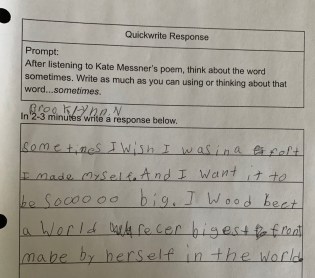 Quickwrite Response
Prompt:
After listening to Kate Messner's poem, think about the word
sometimes. Write as much as you can using or thinking about that
word...sometimes.
Brooklynn.N
In 2-3 minutes write a response below.
Sometimes I Wish I was in a fort
I made myself. And I want it to
be Sooooo big. I Wood beet
a World recer bigest front
mabe by herself in the World